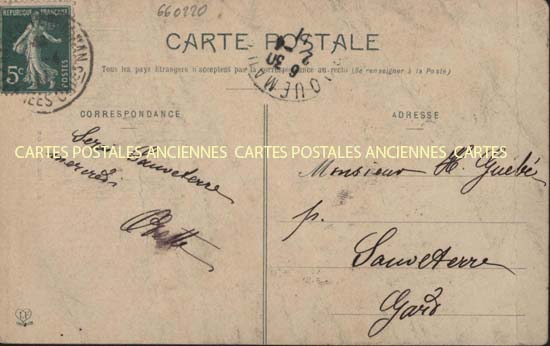 660220
RÉPUBLIQUE FRANÇAISE
5c
POSTES
CARTE POSTALE
Tous les pays Etrangers n'acceptent pas la correspondance au recto (Se renseigner à la Poste)
CORRESPONDANCE
ADRESSE
Sauveterre
mercredi
CARTES POSTALES ANCIENNES CARTES POSTALES ANCIENNES CARTES POSTALES ANCIENNES
Monsieur H. Guébé
p.
Sauveterre
Gard